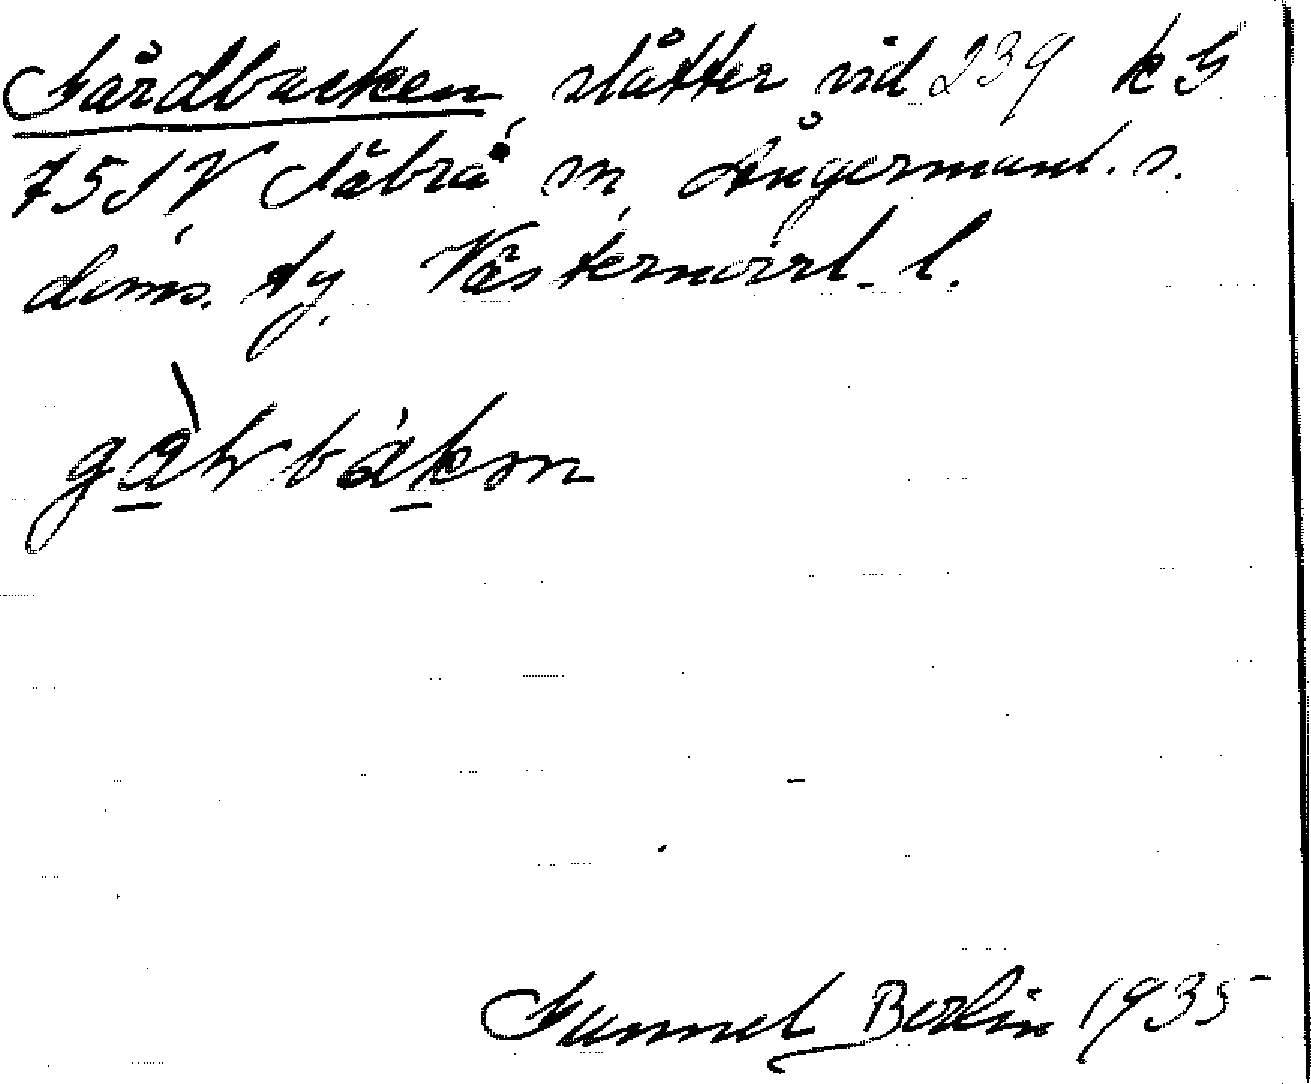 Gårdbacken slåtter vid 239 k G
75 SV Säbrå sn, Ångermanl. s.
doms. tg. Västernorrl. l.
gàrbákɐn
Gunnel Berlin 1935